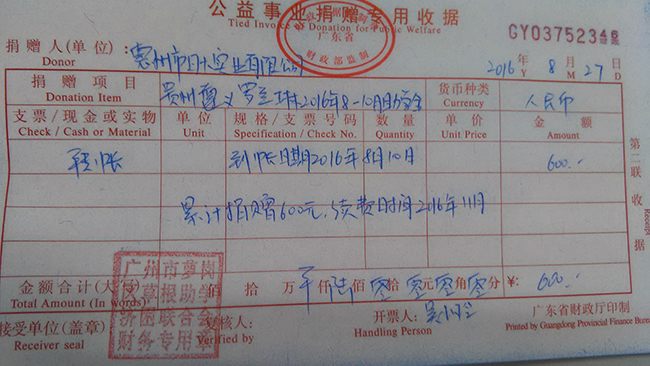 公益事业捐赠专用收据
Tied Invoice Donation for Public Welfare
广东省
财政部监制
GY03752348
捐赠人(单位):惠州市日大实业有限公司
Donor
2016年 8月 27日
Y M D
捐赠项目 贵州遵义 2016年8-10月助学金 货币种类 人民币
Donation Item Currency
支票/现金或实物 单位 规格/支票号码 数量 单价 金额
Check / Cash or Material Unit Specification / Check No. Quantity Unit Price Amount
转帐 到帐日期2016年8月10日 600.-
累计捐赠600元,续费时间2016年11月
第二联 收据
Receipt
金额合计(大写) 佰 拾 万 仟 陆佰 零拾 零元 零角 零分 ¥: 600.-
Total Amount (In words)
广州市萝岗
区草根助学
济困联合会
财务专用章
接受单位(盖章) 复核人: 开票人: 广东省财政厅印制
Receiver seal Verified by Handling Person Printed by Guangdong Provincial Finance Bureau